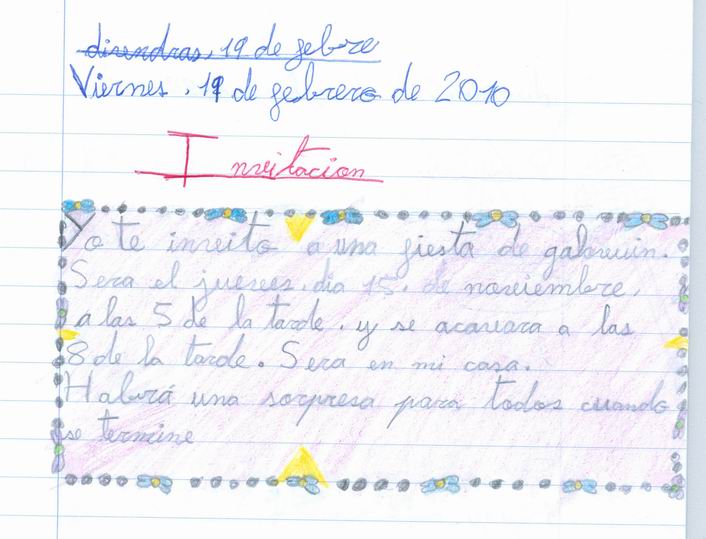 19 de febre
Viernes, 19 de febrero de 2010
Invitacion
Yo te invito a una fiesta de galowuin.
Sera el jueves, dia 15, de noviembre,
a las 5 de la tarde, y se acavara a las
8 de la tarde. Sera en mi casa.
Habrá una sorpresa para todos cuando
se termine